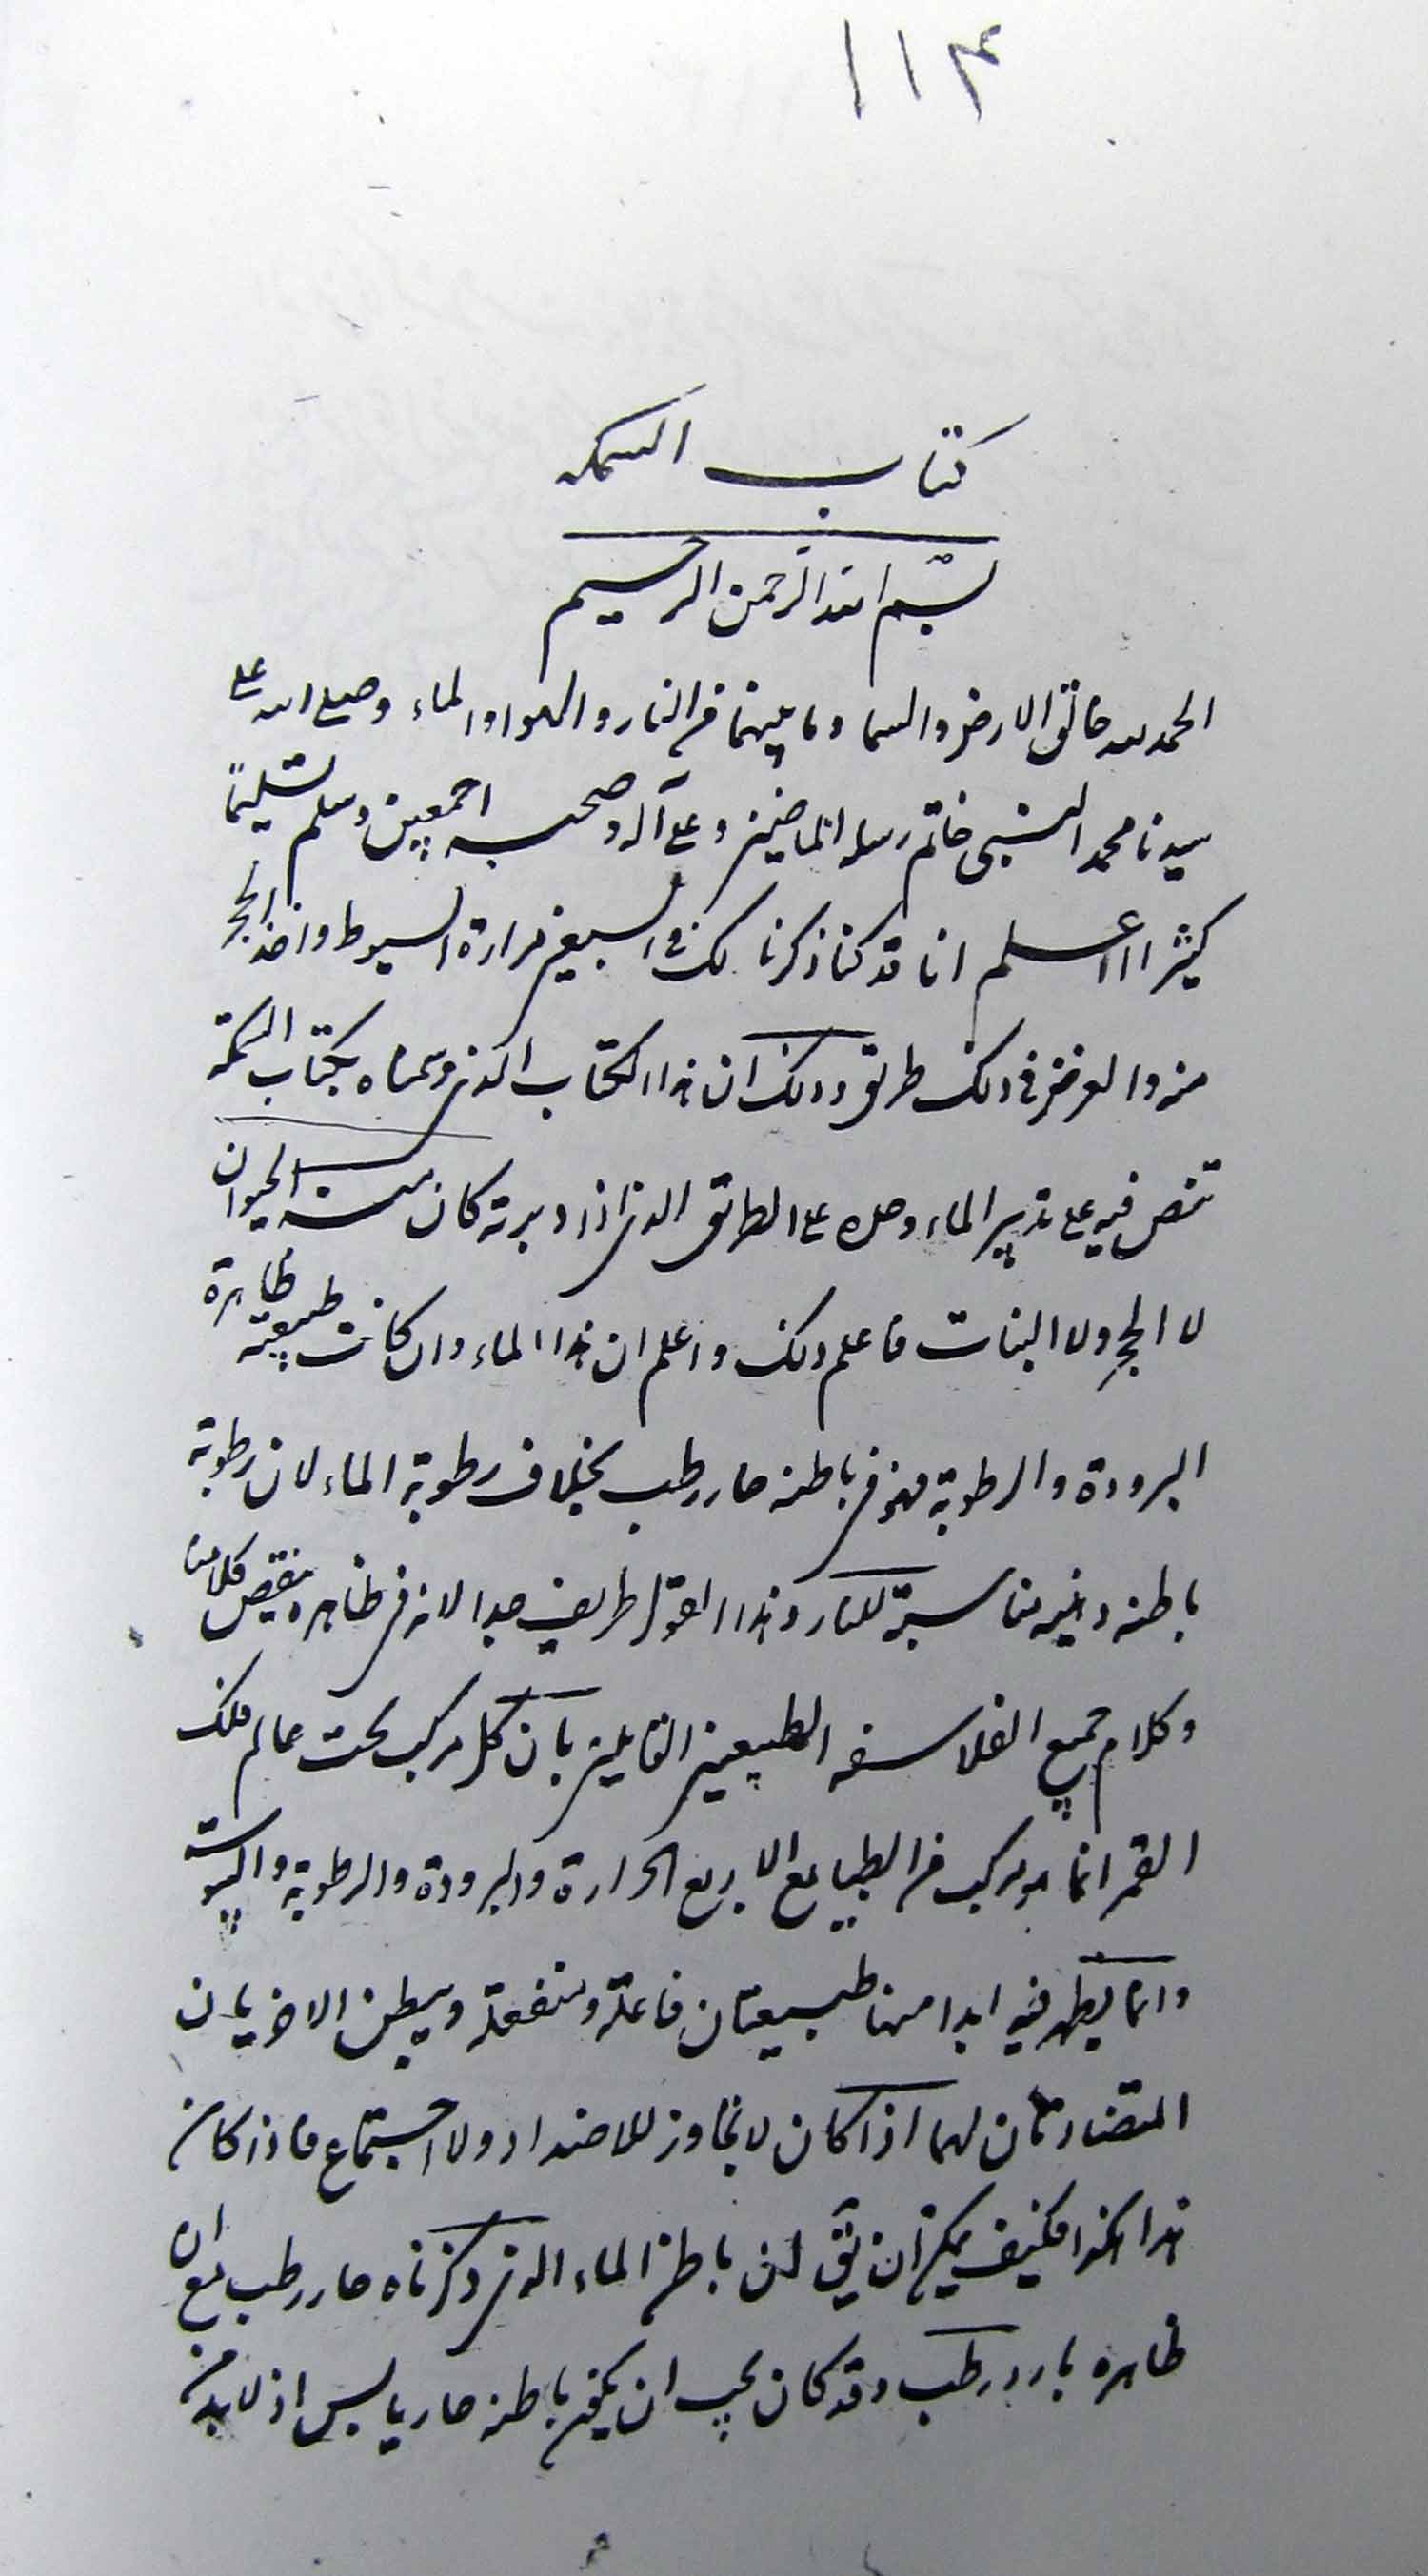 ١١٤
كتاب السمكه
بسم الله الرحمن الرحيم
الحمد لله خالق الارض والسما وما بينهما من النار والهوا والماء وصلى الله على
سيدنا محمد النبى خاتم رسله الماضين وعلى آله وصحبه اجمعين وسلم تسليمًا
كثيرا اعلم انا قد كنا ذكرنا لك فى السبعين مرارة السيوط واخذ الحجر
منه والغرض فى ذلك طريق وذلك ان هذا الكتاب الذى وسمناه بكتاب السمكة
تنص فيه على تدبير الماء وحله على الطريق الذى اذا دبرته كان منه الحيوان
لا الحجر ولا النبات فاعلم ذلك واعلم ان هذا الماء وان كانت طبيعته ظاهرة
البرودة والرطوبة فهو فى باطنه حار رطب بخلاف رطوبة الماء لان رطوبة
باطنه دهنيه مناسبة للنار وهذا القول طريف جدا لانه فى ظاهره نقيض كلامنا
وكلام جميع الفلاسفه الطبيعين القايلين بان كل مركب تحت عالم فلك
القمر انما هو مركب من الطبايع الاربع الحرارة والبرودة والرطوبة واليبوسة
وانما يظهر فيه ابدا منها طبيعتان فاعلة ومنفعلة ويبطن الاخريان
المتضادتان لهما اذا كان لا تجاوز للاضداد ولا اجتماع فاذا كان
هذا هكذا فكيف يمكن ان يق لن باطن الماء الذى ذكرناه حار رطب مع ان
ظاهره بارد رطب وقد كان يجب ان يكون باطنه حار يابس اذ لابد من